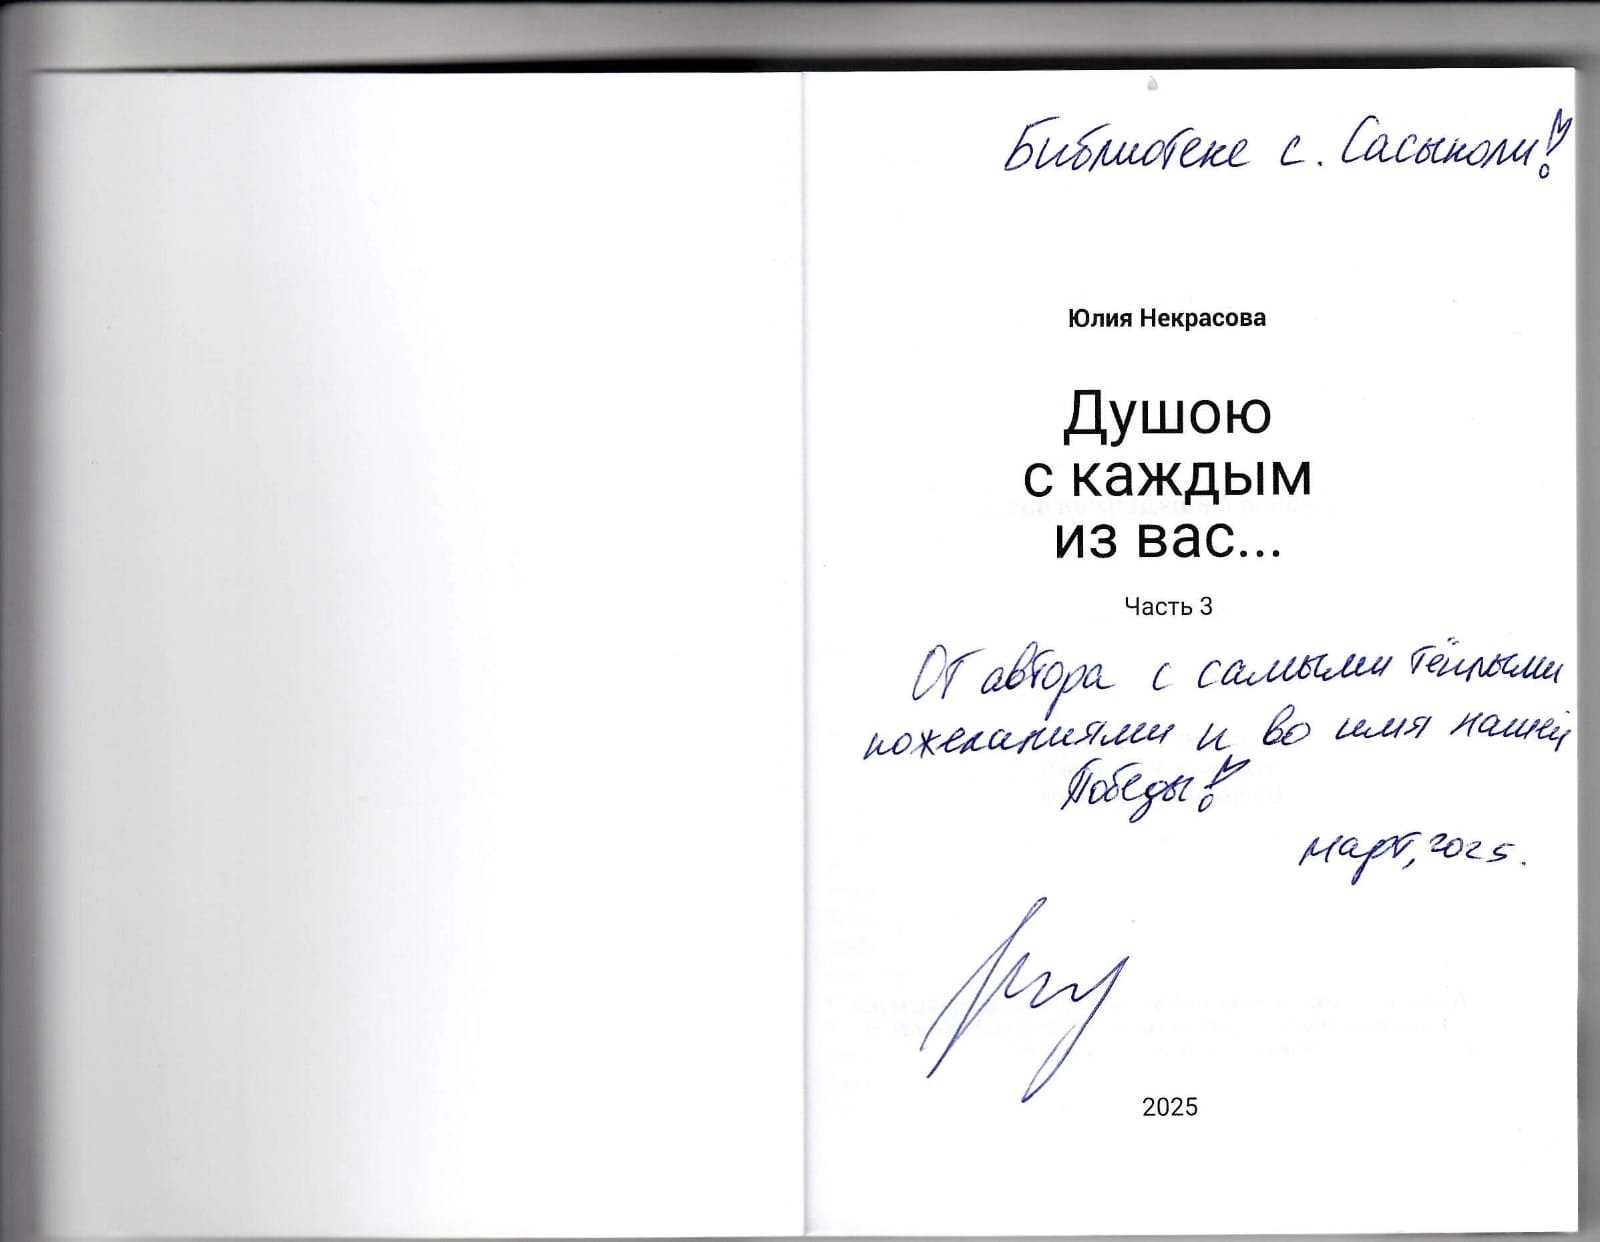 Библиотеке с. Сасыколи!
Юлия Некрасова
Душою
с каждым
из вас...
Часть 3
От автора с самыми тёплыми
пожеланиями и во имя нашей
Победы!
март, 2025.
2025